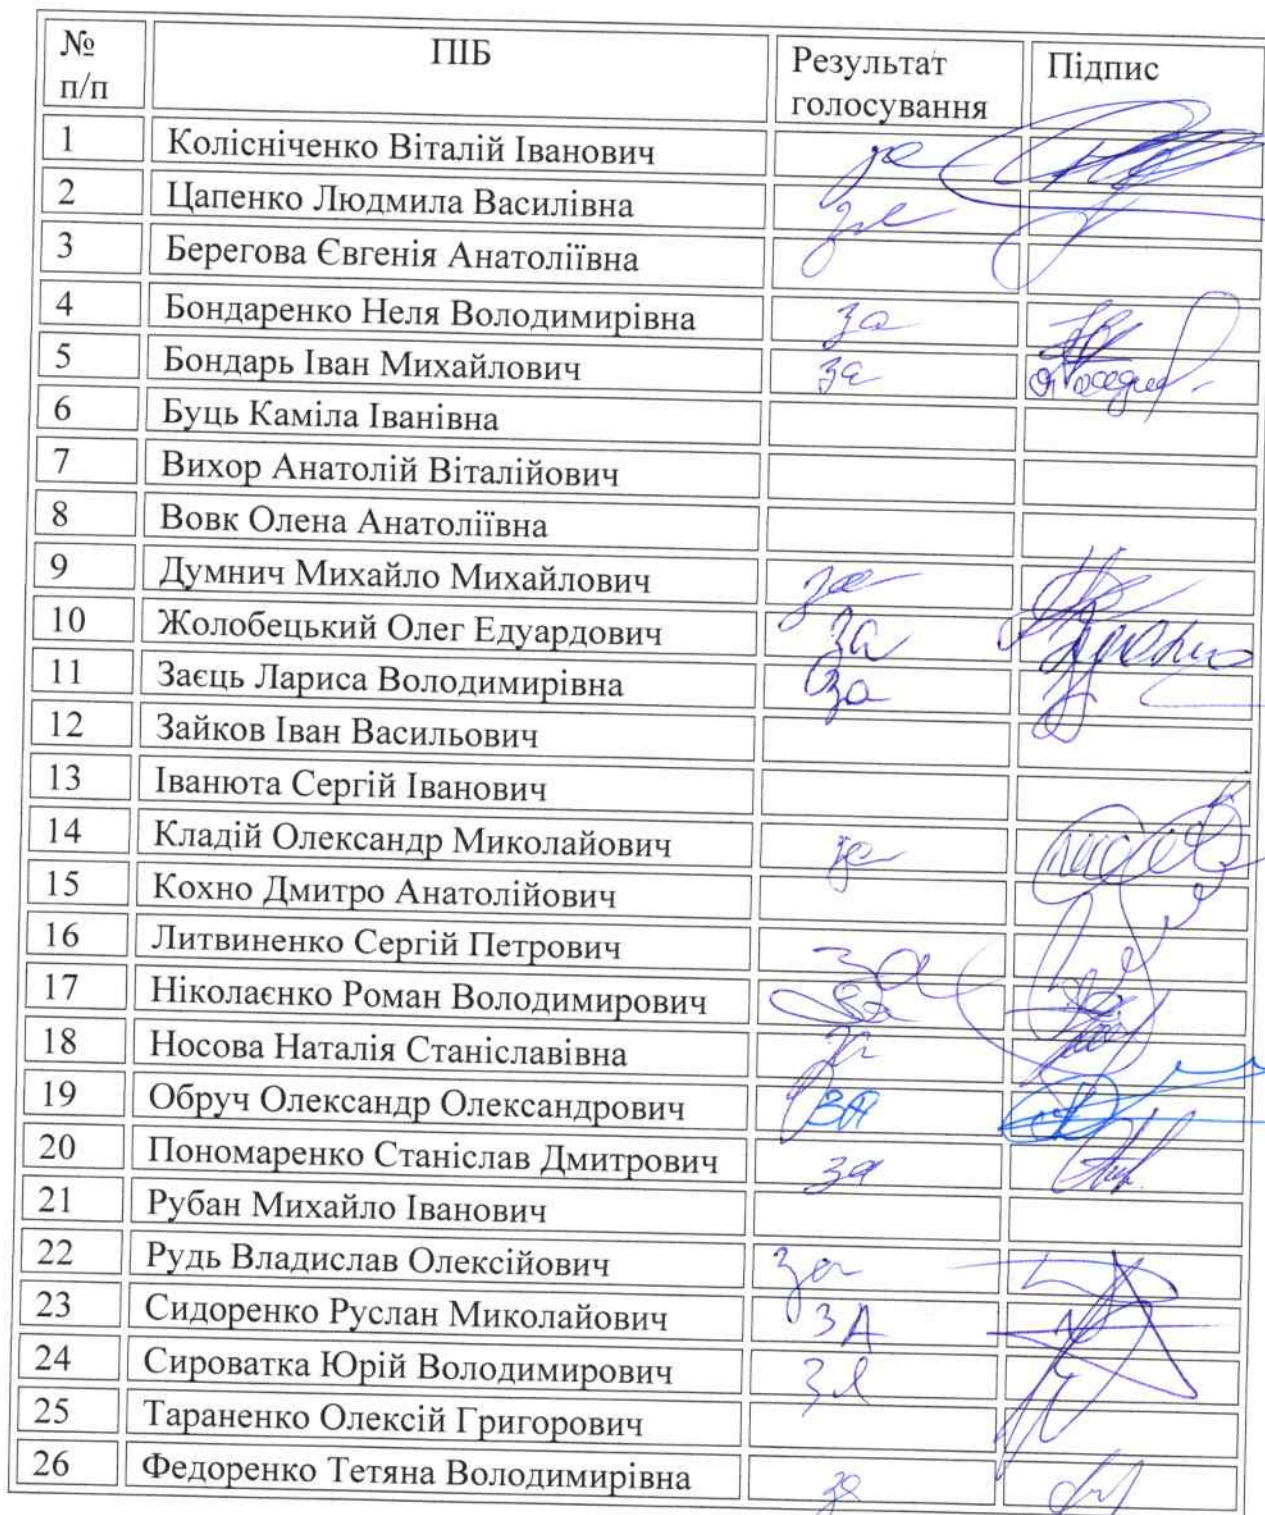 № п/п ПІБ Результат голосування Підпис
1 Колісніченко Віталій Іванович за
2 Цапенко Людмила Василівна за
3 Берегова Євгенія Анатоліївна
4 Бондаренко Неля Володимирівна за
5 Бондарь Іван Михайлович за
6 Буць Каміла Іванівна
7 Вихор Анатолій Віталійович
8 Вовк Олена Анатоліївна
9 Думнич Михайло Михайлович за
10 Жолобецький Олег Едуардович за
11 Заєць Лариса Володимирівна за
12 Зайков Іван Васильович
13 Іванюта Сергій Іванович
14 Кладій Олександр Миколайович за
15 Кохно Дмитро Анатолійович
16 Литвиненко Сергій Петрович за
17 Ніколаєнко Роман Володимирович за
18 Носова Наталія Станіславівна за
19 Обруч Олександр Олександрович ЗА
20 Пономаренко Станіслав Дмитрович за
21 Рубан Михайло Іванович
22 Рудь Владислав Олексійович за
23 Сидоренко Руслан Миколайович ЗА
24 Сироватка Юрій Володимирович за
25 Тараненко Олексій Григорович
26 Федоренко Тетяна Володимирівна за